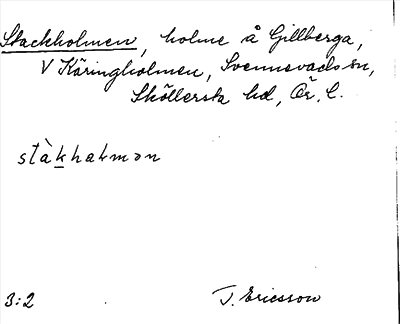 Stackholmen, holme å Gillberga,
V Käringholmen, Svennevads sn,
Sköllersta hd, Ör. l.
stàkhalmən
3:2 T. Ericsson